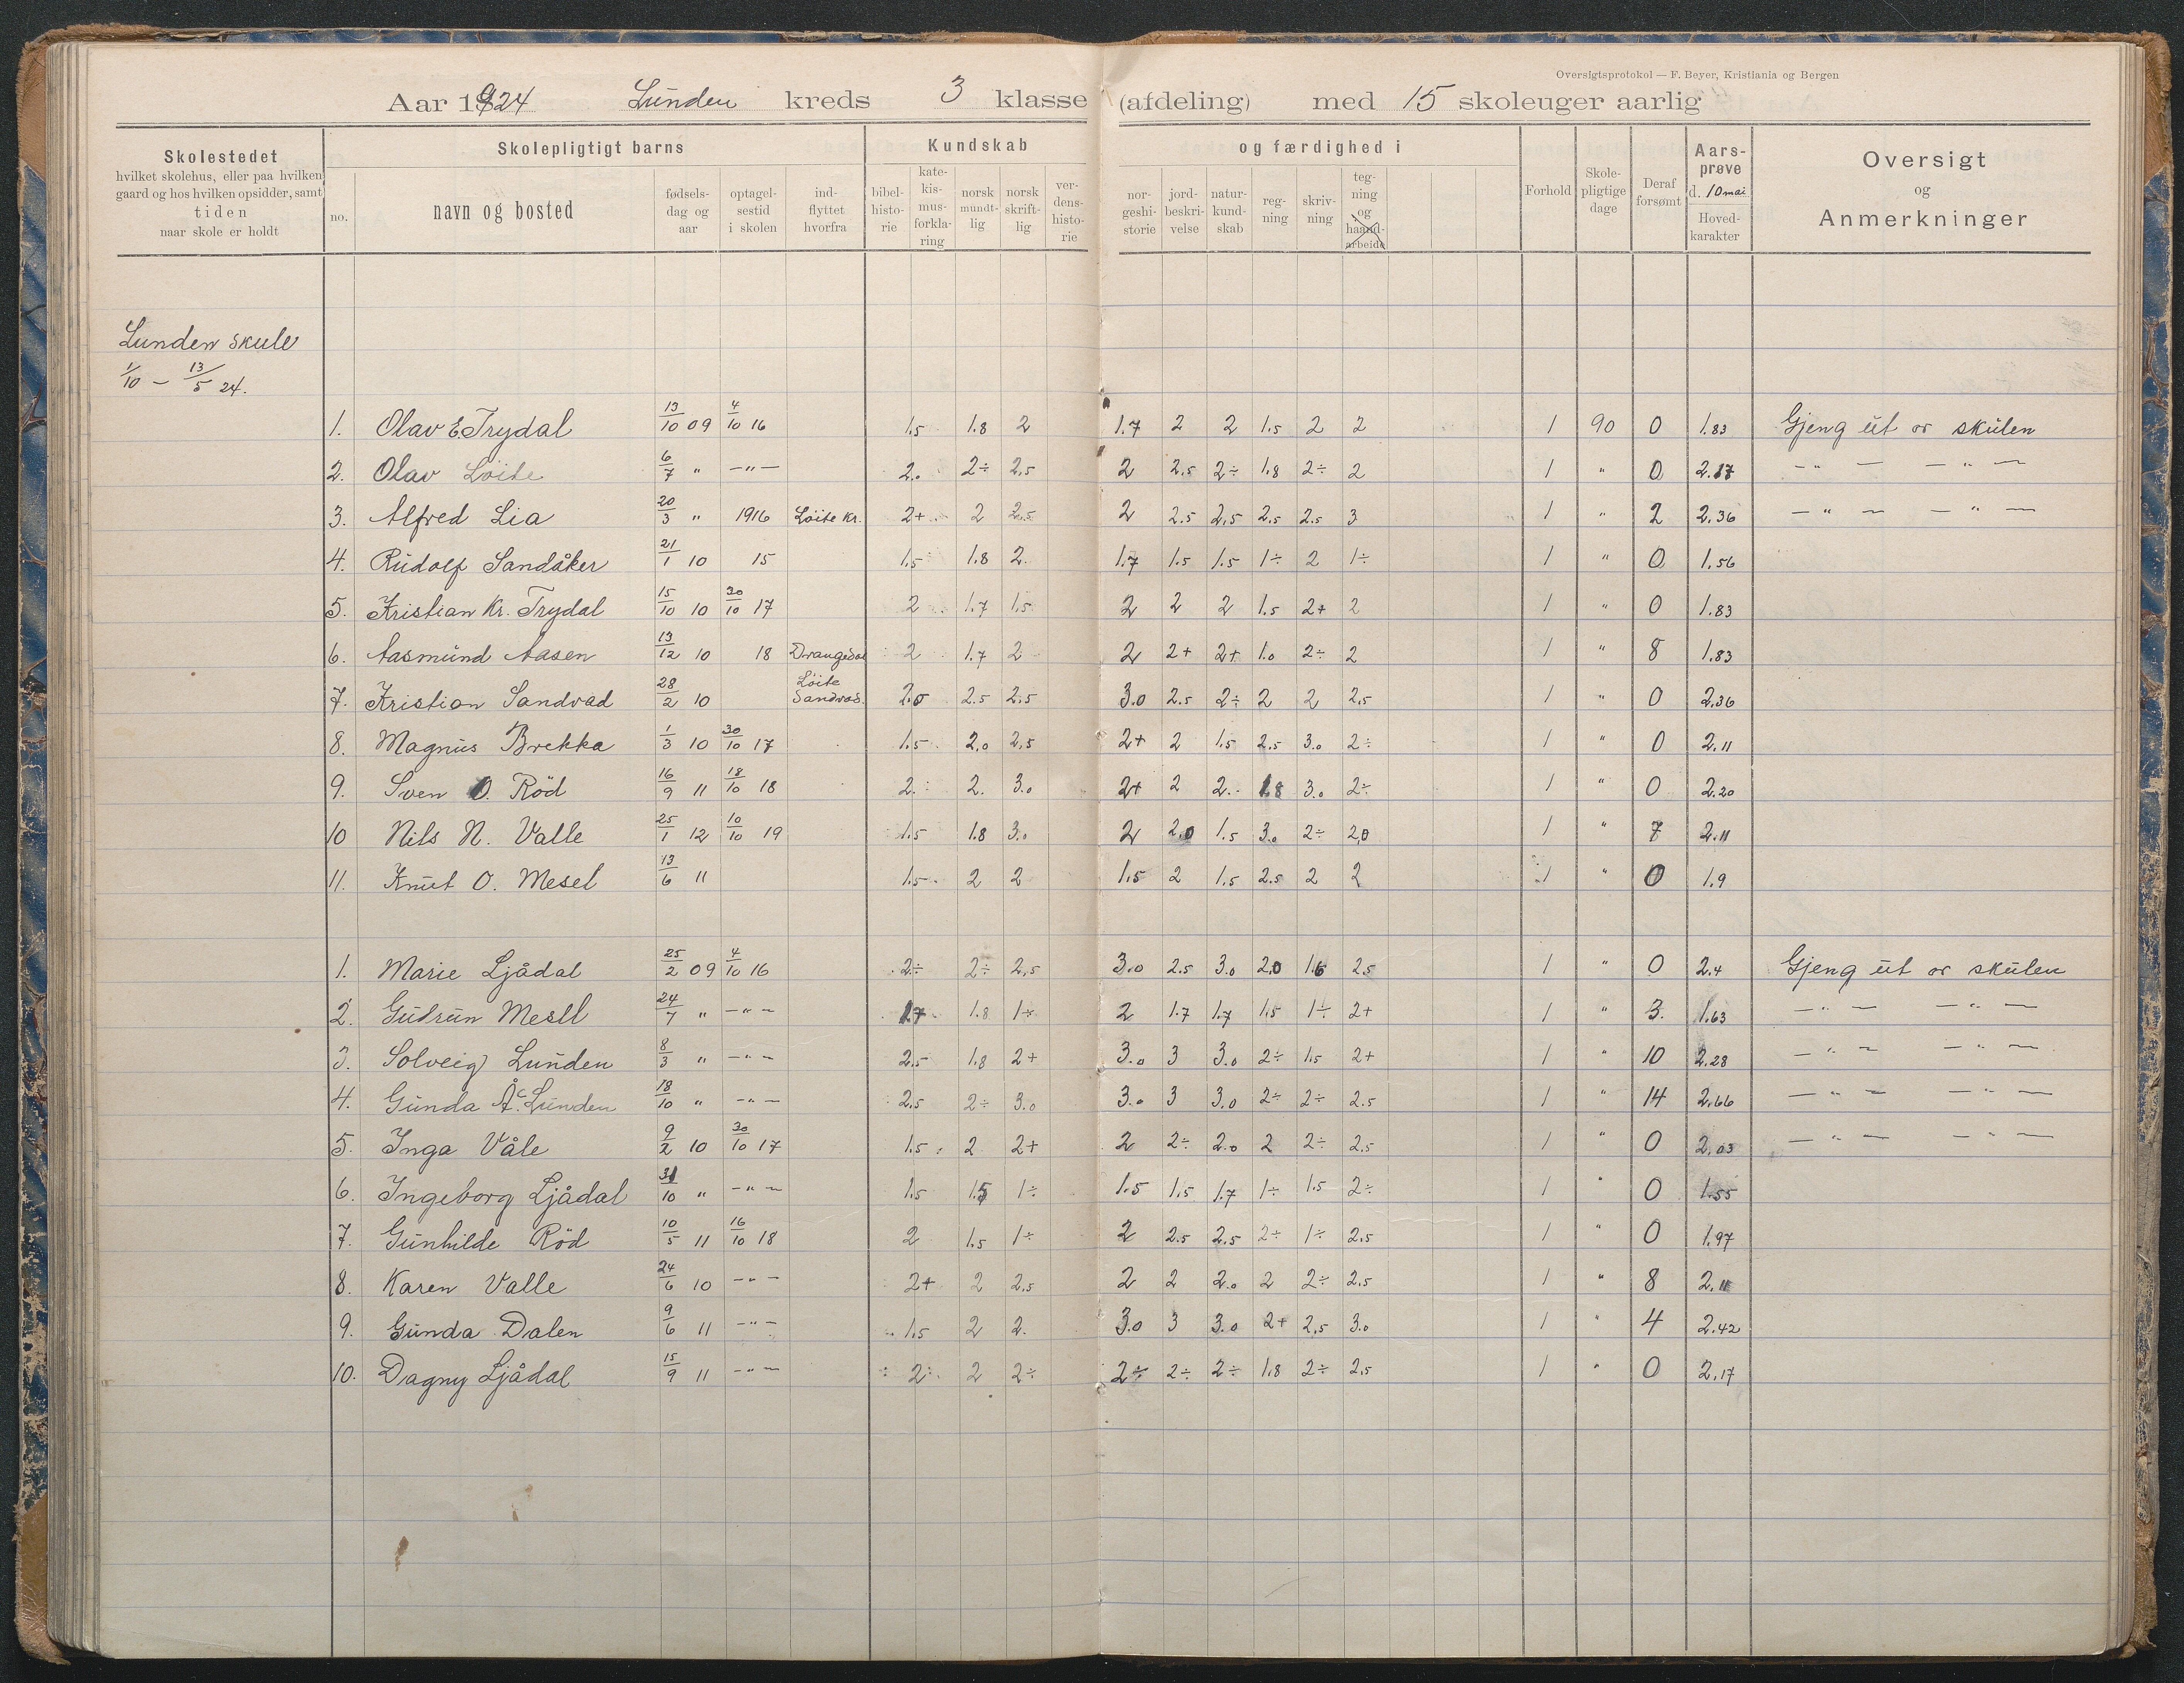 Oversigtsprotokol — F. Beyer, Kristiania og Bergen
Aar 1924 Lunden kreds 3 klasse (afdeling) med 15 skoleuger aarlig
Skolestedet
hvilket skolehus, eller paa hvilken
gaard og hos hvilken opsidder, samt
tiden
naar skole er holdt
Skolepligtigt barns
no.
navn og bosted
fødsels-
dag og
aar
optagel-
sestid
i skolen
ind-
flyttet
hvorfra
Kundskab
bibel-
histo-
rie
kate-
kis-
mus-
forkla-
ring
norsk
mundt-
lig
norsk
skrift-
lig
ver-
dens-
histo-
rie
og færdighed i
nor-
geshi-
storie
jord-
beskri-
velse
natur-
kund-
skab
reg-
ning
skriv-
ning
teg-
ning
og
haand-
arbeide
Forhold
Skole-
pligtige
dage
Deraf
forsømt
Aars-
prøve
d. 10 mai
Hoved-
karakter
Oversigt
og
Anmerkninger
Lunden skule
1/10 – 13/5 24.
1. Olav E. Trydal 13/10 09 4/10 16 1.5 1.8 2 1.7 2 2 1.5 2 2 1 90 0 1.83 Gjeng ut or skulen
2. Olav Löite 6/7 " —"— 2. 2÷ 2.5 2 2.5 2÷ 1.8 2÷ 2 1 " 0 2.17 —"— —"—
3. Alfred Lia 20/3 " 1916 Löite kr. 2+ 2 2.5 2 2.5 2.5 2.5 2.5 3 1 " 2 2.36 —"— —"—
4. Rudolf Sandåker 21/1 10 15 1.5 1.8 2. 1.7 1.5 1.5 1÷ 2 1÷ 1 " 0 1.56
5. Kristian Kr. Trydal 15/10 10 30/10 17 2 1.7 1.5 2 2 2 1.5 2+ 2 1 " 0 1.83
6. Aasmund Aasen 13/12 10 18 Drangedal 2 1.7 2 2 2+ 2+ 1.0 2÷ 2 1 " 8 1.83
7. Kristian Sandvad 28/2 10 Löite Sandvad. 2.0 2.5 2.5 3.0 2.5 2÷ 2 2 2.5 1 " 0 2.36
8. Magnus Brekka 1/3 10 30/10 17 1.5 2.0 2.5 2+ 2 1.5 2.5 3.0 2÷ 1 " 0 2.11
9. Sven O. Röd 16/9 11 18/10 18 2. 2. 3.0 2+ 2 2. 1.8 3.0 2÷ 1 " 0 2.20
10 Nils N. Valle 25/1 12 10/10 19 1.5 1.8 3.0 2 2.0 1.5 3.0 2÷ 2.0 1 " 7 2.11
11. Knut O. Mesel 13/6 11 1.5 2 2 1.5 2 1.5 2.5 2 2 1 " 0 1.9
1. Marie Ljådal 25/2 09 4/10 16 2÷ 2÷ 2.5 3.0 2.5 3.0 2.0 1.6 2.5 1 " 0 2.4 Gjeng ut or skulen
2. Gudrun Mesel 24/7 " —"— 1.7 1.8 1÷ 2 1.7 1.7 1.5 1÷ 2+ 1 " 3. 1.63 —"— —"—
3. Solveig Lunden 8/3 " —"— 2.5 1.8 2+ 3.0 3 3.0 2÷ 1.5 2+ 1 " 10 2.28 —"— —"—
4. Gunda Å. Lunden 18/10 " —"— 2.5 2÷ 3.0 3.0 3 3.0 2÷ 2÷ 2.5 1 " 14 2.66 —"— —"—
5. Inga Våle 9/2 10 30/10 17 1.5 2 2+ 2 2÷ 2.0 2 2÷ 2.5 1 " 0 2.03 —"— —"—
6. Ingeborg Ljådal 31/10 " —"— 1.5 1.5 1÷ 1.5 1.5 1.7 1÷ 1.5 2÷ 1 " 0 1.55
7. Gunhilde Röd 10/5 11 16/10 18 2 1.5 1÷ 2 2.5 2.5 2÷ 1÷ 2.5 1 " 0 1.97
8. Karen Valle 24/6 10 —"— 2+ 2 2.5 2 2 2.0 2 2÷ 2.5 1 " 8 2.11
9. Gunda Dalen 9/6 11 —"— 1.5 2 2. 3.0 3 3.0 2+ 2.5 3.0 1 " 4 2.42
10. Dagny Ljådal 15/9 11 —"— 2 2 2÷ 2÷ 2÷ 2÷ 1.8 2÷ 2.5 1 " 0 2.17